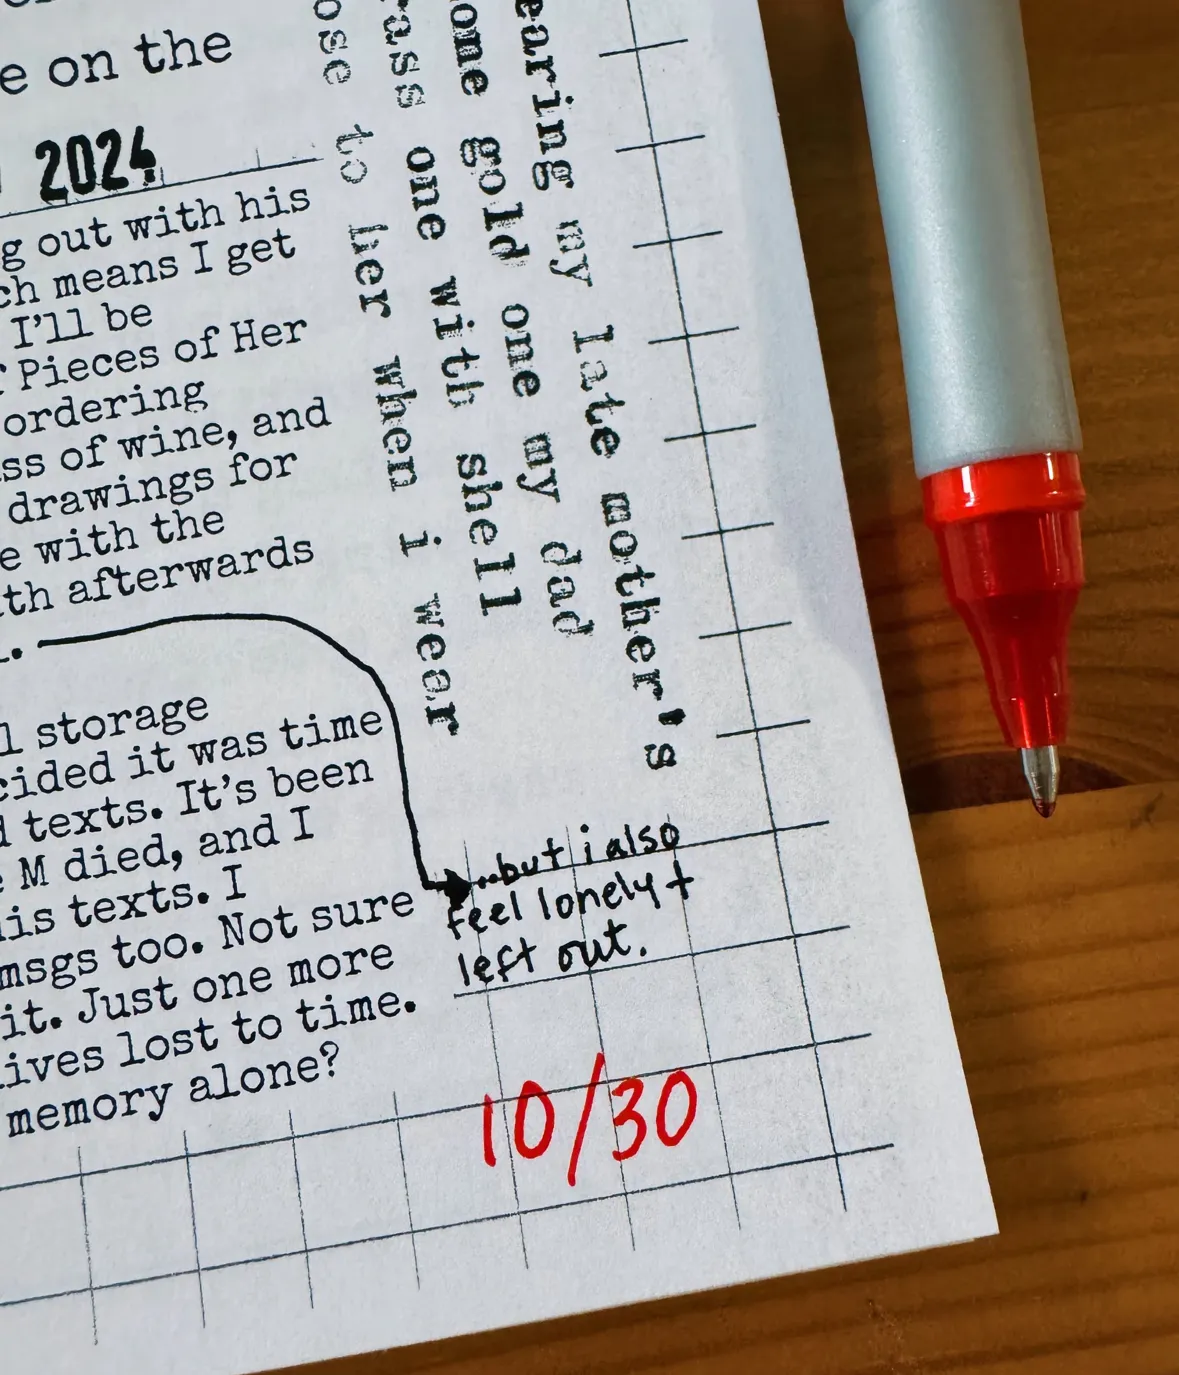 e on the
2024
g out with his
ch means I get
I'll be
Pieces of Her
ordering
ss of wine, and
drawings for
e with the
th afterwards
l storage
cided it was time
d texts. It's been
e M died, and I
his texts. I
msgs too. Not sure
it. Just one more
lives lost to time.
memory alone?
earing my late mother's
ome gold one my dad
rass one with shell
ose to her when i wear
...but i also
feel lonely +
left out.
10/30